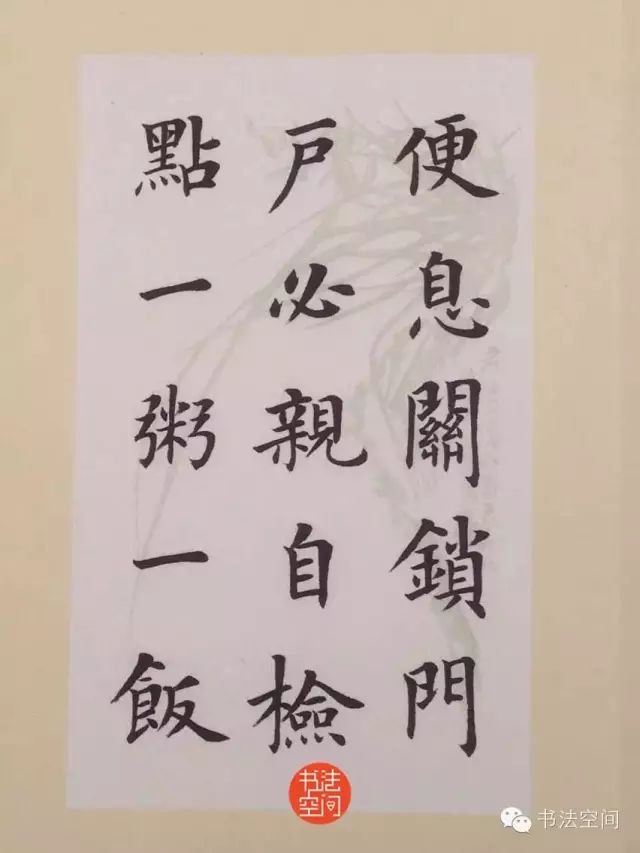 便息關鎖門
戶必親自檢
點一粥一飯
书法空间
书法空间